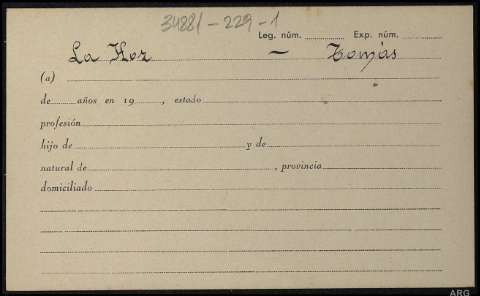 34881-229-1
Leg. núm. Exp. núm.
La Hoz — Tomás
(a)
de años en 19 , estado
profesión
hijo de y de
natural de , provincia
domiciliado
ARG